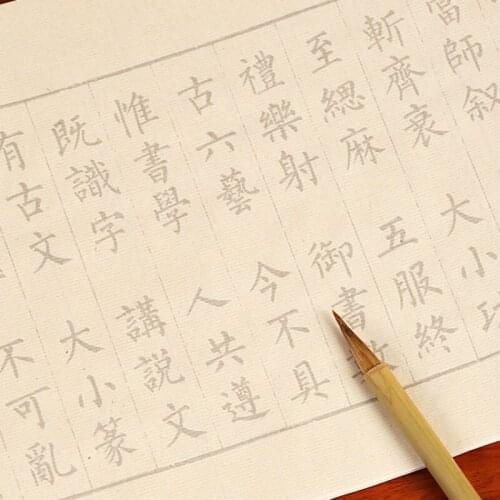 當師叙
斬齊衰大小功
至緦麻五服終
禮樂射御書數
古六藝今不具
惟書學人共遵
既識字講說文
有古文大小篆
不可亂